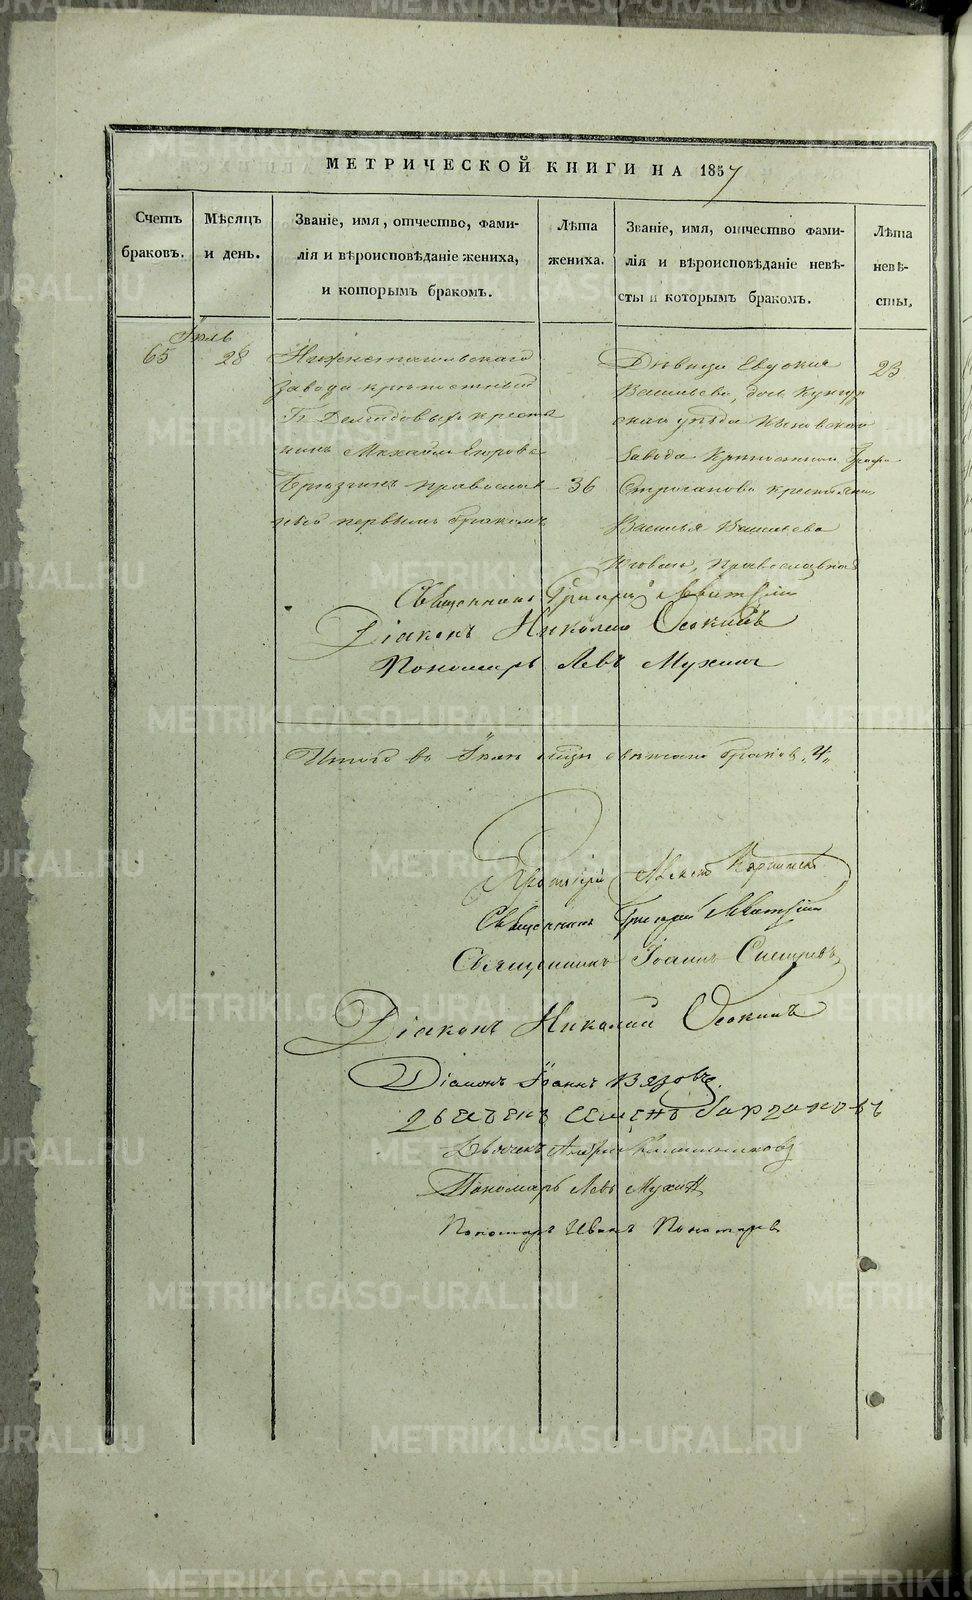 МЕТРИЧЕСКОЙ КНИГИ НА 1857
Счетъ браковъ.
Мѣсяцъ и день.
Званіе, имя, отчество, фами-
лія и вѣроисповѣданіе жениха,
и которымъ бракомъ.
Лѣта жениха.
Званіе, имя, отчество фами-
лія и вѣроисповѣданіе невѣ-
сты и которымъ бракомъ.
Лѣта невѣ-
сты.
Іюль
65
28
Нижнетагильскаго
завода крѣпостный
Гг. Демидовыхъ кресть
нинъ Михаилъ Егоровъ
православ
ный первымъ бракомъ
36
Дѣвица Евдокія
Васильева, дочь Кунгур
скаго уѣзда Кыновскаго
Завода Крѣпостнаго Графа
Строганова крестьянина
Василья Васильева
Православная
23
Священникъ Григорій Левитскій
Діаконъ Николай Осокинъ
Пономарь Левъ Мухинъ
Итого въ Іюлѣ мѣсяцѣ браковъ „4„
Протоіерей
Священникъ Григорій Левитскій
Священникъ Іоаннъ
Діаконъ Николай Осокинъ
Діаконъ Іоаннъ Вязовъ.
Семенъ
Дьячекъ
Пономарь Левъ Мухинъ
Пономарь Иванъ Пономаревъ
METRIKI.GASO-URAL.RU